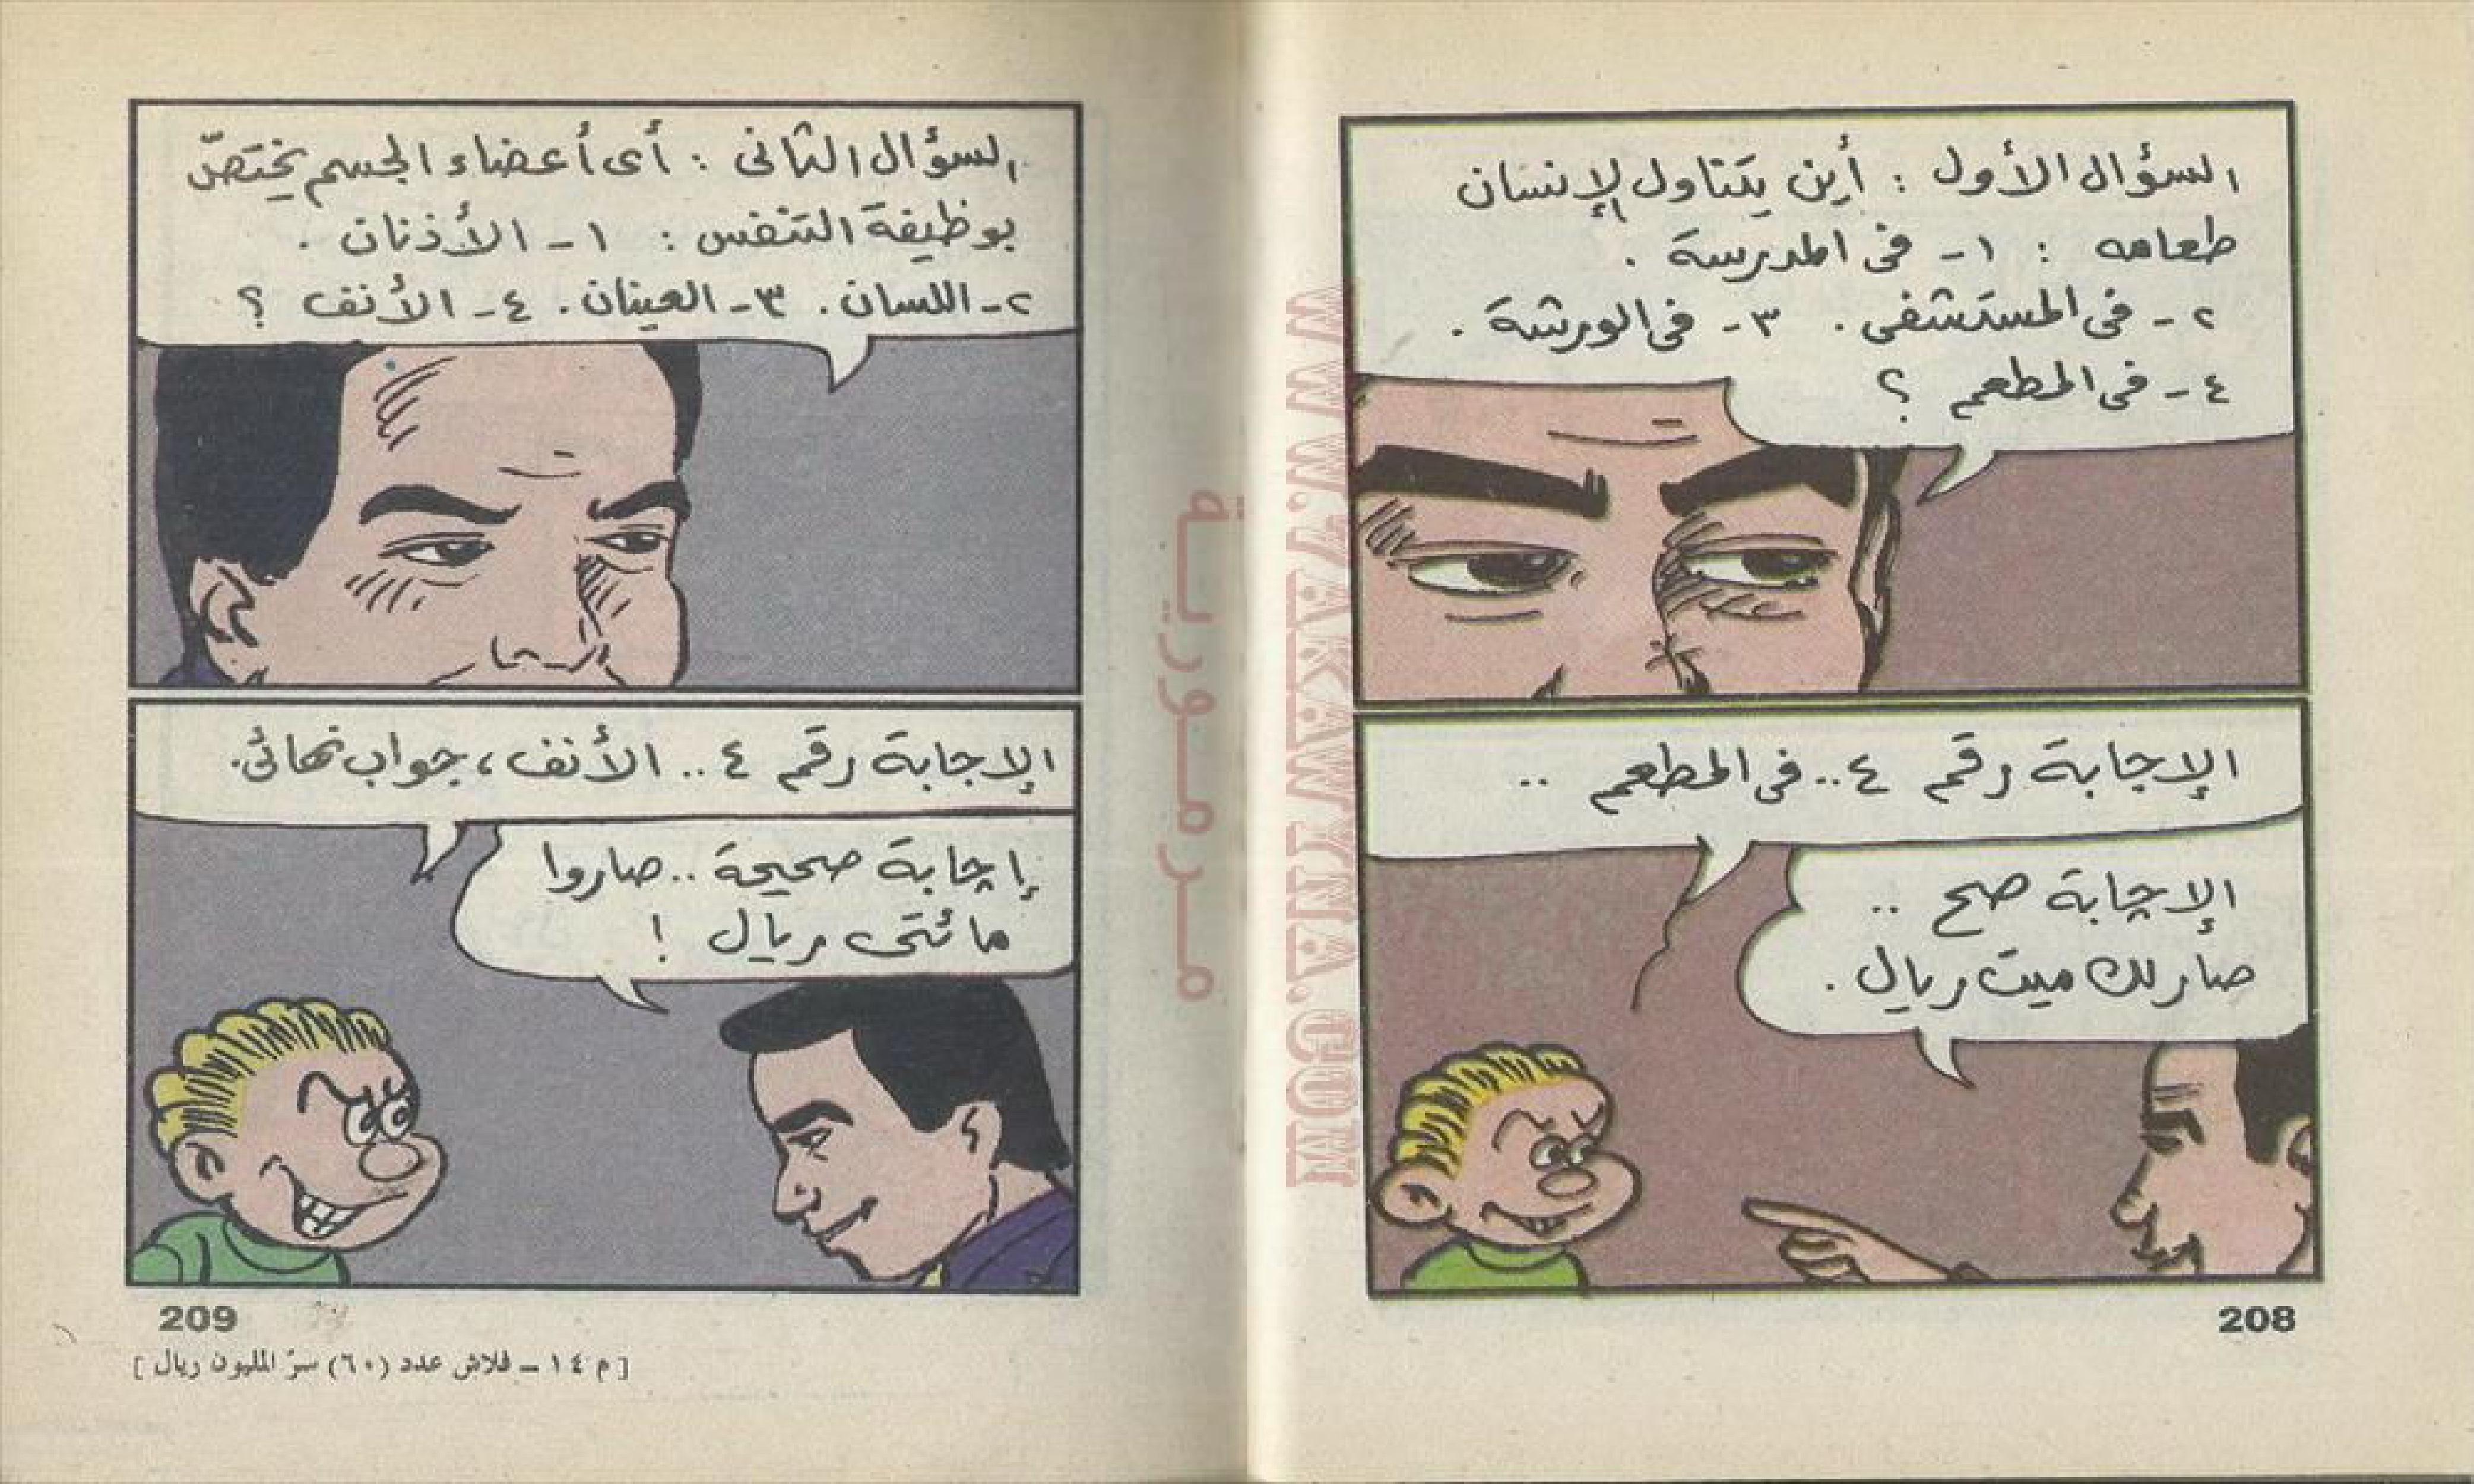 السؤال الأول : أين يتناول الإنسان
طعامه : ١- فى المدرسة .
٢- فى المستشفى . ٣- فى الورشة .
٤- فى المطعم ؟
الإجابة رقم ٤.. فى المطعم ..
الإجابة صح ..
صار لك ميت ريال .
208
السؤال الثانى : أى أعضاء الجسم يختصّ
بوظيفة التنفس : ١- الأذنان .
٢- اللسان . ٣- العينان . ٤- الأنف ؟
الإجابة رقم ٤ .. الأنف ، جواب نهائى .
إجابة صحيحة .. صاروا
مائتى ريال !
209
[ م ١٤ – فلاش عدد (٦٠) سرّ المليون ريال ]
مرمورية